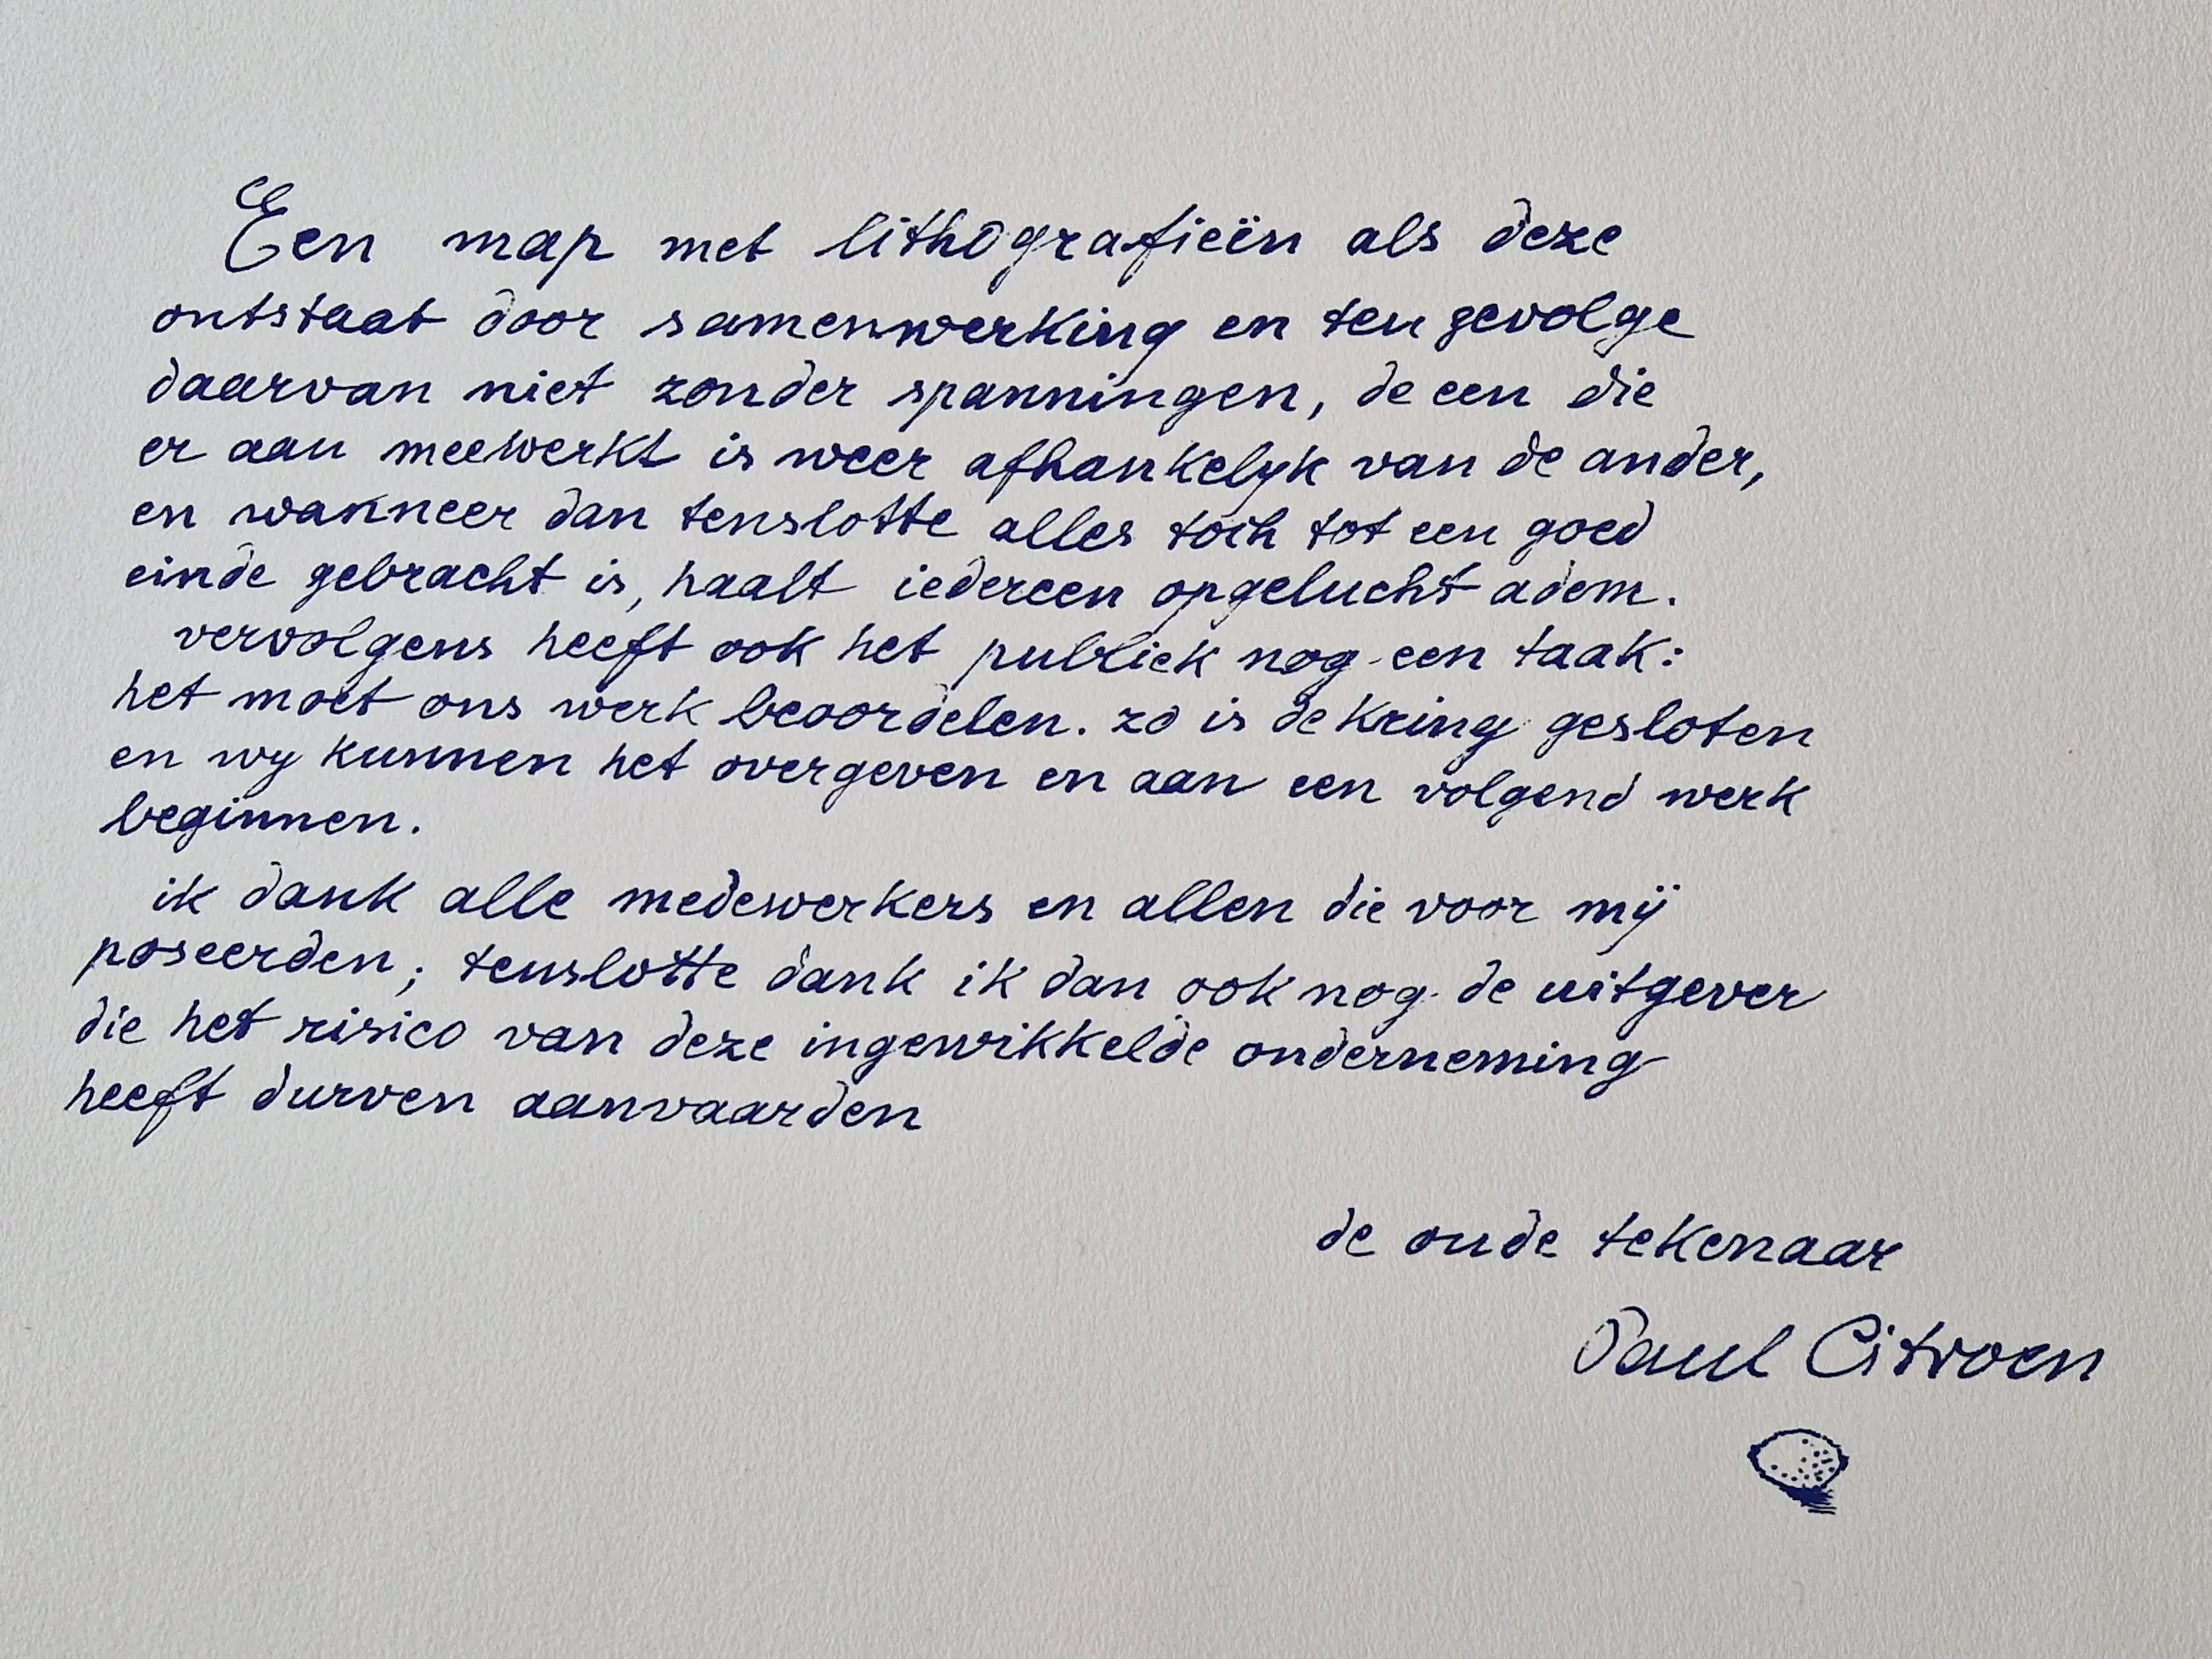 Een map met lithografieën als deze
ontstaat door samenwerking en ten gevolge
daarvan niet zonder spanningen, de een die
er aan meewerkt is weer afhankelyk van de ander,
en wanneer dan tenslotte alles toch tot een goed
einde gebracht is, haalt iedereen opgelucht adem.
vervolgens heeft ook het publiek nog een taak:
het moet ons werk beoordelen. zo is de kring gesloten
en wy kunnen het overgeven en aan een volgend werk
beginnen.
ik dank alle medewerkers en allen die voor mij
poseerden; tenslotte dank ik dan ook nog de uitgever
die het risico van deze ingewikkelde onderneming
heeft durven aanvaarden
de oude tekenaar
Paul Citroen